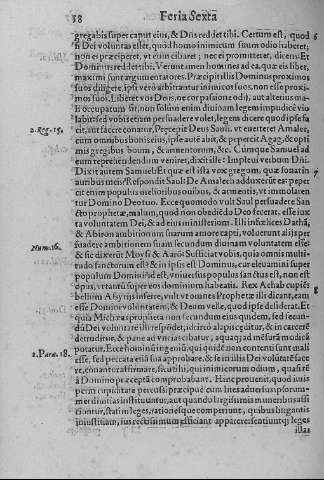 58 Feria Sexta
gregabis super caput eius, & Dñs reddet tibi. Certum est, quod 6
si Dei voluntas esset, quod homo inimicum suum odio haberet;
non ei præciperet, vt eum cibaret; nec ei promitteret, dicens: Et
Dominus reddet tibi. Verumtamen homines ad ea, quæ eis libet,
maximi sunt argumentatores. Præcipit illis Dominus proximos
suos diligere, ipsi vero arbitrantur inimicos suos, non esse proxi-
mos suos. Liberet vos Deus, ne
occupatum sit, non solum enim diuinam legem impudicè vio
labit, sed vobis etiam persuadere volet, legem dicere quod ipse fa
2. Reg. 15. cit, aut facere conatur. Præcepit Deus Sauli, vt euerteret Amalec,
cum omnibus bonis eius, ipse aute abit, & pepercit Agag, & opti
mis gregibus boum, & armentorum, &c. Cumque Samuel ad
eum reprehendendum veniret, dixit ille: Impleui verbum Dñi.
Dixit autem Samuel: Et quæ est ista vox gregum, quæ sonat in 7
auribus meis? & respondit Saul: De Amalech adduxerūt ea: peper
cit enim populus melioribus ouibus, & armentis, vt immolaren
tur Domino Deo tuo. Ecce quomodo vult Saul persuadere San
cto prophetæ, malum, quod non obediēdo Deo fecerat, esse iux
ta voluntatem Dei, & ad eius ministerium. Illi infœlices Dathā,
& Abiron ambitionum suarum amore capti, voluerunt alijs per
Num. 16. suadere ambitionem suam secundum diuinam voluntatem esse:
& sic dixerūt Moysi & Aarō: Sufficiat vobis, quia omnis multi-
tudo sanctorum est: & in ipsis est Dominus, cur eleuamini super
populum Domini? id est, vniuersus populus sanctus est, non est
opus, vt tantū super eos dominium habeatis. Rex Achab cupiēs 8
bellum Assyrijs inferre, vult vt omnes Prophetæ illi dicant, eam
esse Domini voluntatem, & Deum velle, quod ipse desiderat. Et
quia Micheas propheta non secundum eius quidem, sed secun-
dū Dei voluntatem illi respōdet, idcirco alapis cæditur, & in carcerē
detruditur, & pane ad viuas cibatur, aquaq; ad mēsurā modicā
2. Para. 18. potatur. Ecce homines
esse, sed peccata etiā sua approbare, & se in illis Dei volūtatē face
re, conantur affirmare, sicuti hi, qui inimicorum odium, quasi rē
à Domino præceptā comprobabant. Hinc prouenit, quod iniis
per in
mediuatio instituuntur, aut quando largissimis muneribus assi
ciontur, statim leges, rationesque comperiunt, quibus litigantis
iniustitiam, ius rectissimum efficiant apparere: sentiuntq; leges
illas